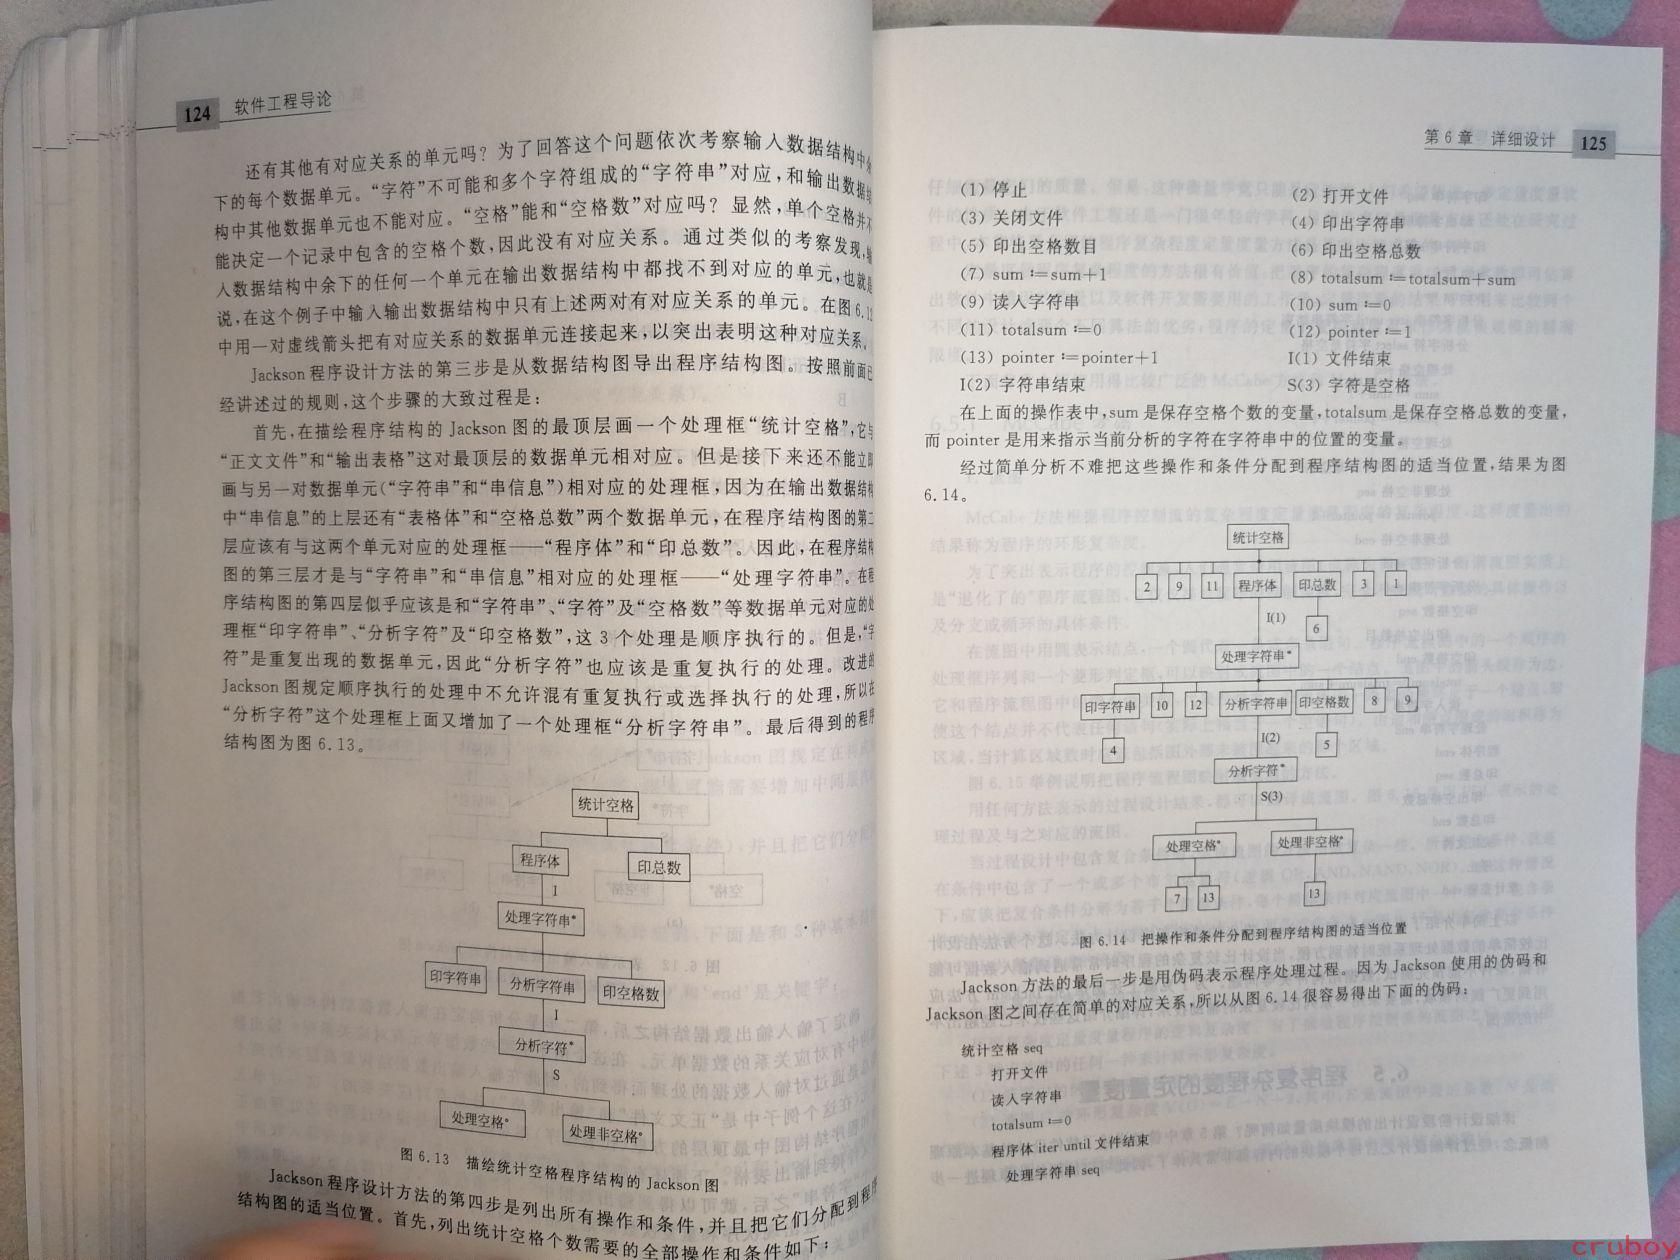 124 软件工程导论
还有其他有对应关系的单元吗？为了回答这个问题依次考察输入数据结构中
下的每个数据单元。“字符”不可能和多个字符组成的“字符串”对应，和输出数据结
构中其他数据单元也不能对应。“空格”能和“空格数”对应吗？显然，单个空格并不
能决定一个记录中包含的空格个数，因此没有对应关系。通过类似的考察发现，输
入数据结构中余下的任何一个单元在输出数据结构中都找不到对应的单元，也就是
说，在这个例子中输入输出数据结构中只有上述两对有对应关系的单元。在图6.12
中用一对虚线箭头把有对应关系的数据单元连接起来，以突出表明这种对应关系。
Jackson程序设计方法的第三步是从数据结构图导出程序结构图。按照前面已
经讲述过的规则，这个步骤的大致过程是：
首先，在描绘程序结构的Jackson图的最顶层画一个处理框“统计空格”，它与
“正文文件”和“输出表格”这对最顶层的数据单元相对应。但是接下来还不能立即
画与另一对数据单元(“字符串”和“串信息”)相对应的处理框，因为在输出数据结构
中“串信息”的上层还有“表格体”和“空格总数”两个数据单元，在程序结构图的第二
层应该有与这两个单元对应的处理框——“程序体”和“印总数”。因此，在程序结构
图的第三层才是与“字符串”和“串信息”相对应的处理框——“处理字符串”。在程
序结构图的第四层似乎应该是和“字符串”、“字符”及“空格数”等数据单元对应的处
理框“印字符串”、“分析字符”及“印空格数”，这3个处理是顺序执行的。但是，“字
符”是重复出现的数据单元，因此“分析字符”也应该是重复执行的处理。改进的
Jackson图规定顺序执行的处理中不允许混有重复执行或选择执行的处理，所以在
“分析字符”这个处理框上面又增加了一个处理框“分析字符串”。最后得到的程序
结构图为图6.13。
统计空格
程序体 印总数
I
处理字符串*
印字符串 分析字符串 印空格数
I
分析字符*
S
处理空格° 处理非空格°
图 6.13 描绘统计空格程序结构的 Jackson 图
Jackson程序设计方法的第四步是列出所有操作和条件，并且把它们分配到程序
结构图的适当位置。首先，列出统计空格个数需要的全部操作和条件如下：
第6章 详细设计 125
(1) 停止 (2) 打开文件
(3) 关闭文件 (4) 印出字符串
(5) 印出空格数目 (6) 印出空格总数
(7) sum :=sum+1 (8) totalsum :=totalsum+sum
(9) 读入字符串 (10) sum :=0
(11) totalsum :=0 (12) pointer :=1
(13) pointer :=pointer+1 I(1) 文件结束
I(2) 字符串结束 S(3) 字符是空格
在上面的操作表中，sum是保存空格个数的变量，totalsum是保存空格总数的变量，
而pointer是用来指示当前分析的字符在字符串中的位置的变量。
经过简单分析不难把这些操作和条件分配到程序结构图的适当位置，结果为图
6.14。
统计空格
2 9 11 程序体 印总数 3 1
I(1) 6
处理字符串*
印字符串 10 12 分析字符串 印空格数 8 9
4 I(2) 5
分析字符*
S(3)
处理空格° 处理非空格°
7 13 13
图 6.14 把操作和条件分配到程序结构图的适当位置
Jackson方法的最后一步是用伪码表示程序处理过程。因为Jackson使用的伪码和
Jackson图之间存在简单的对应关系，所以从图6.14很容易得出下面的伪码：
统计空格 seq
打开文件
读入字符串
totalsum :=0
程序体 iter until 文件结束
处理字符串 seq
cruboy